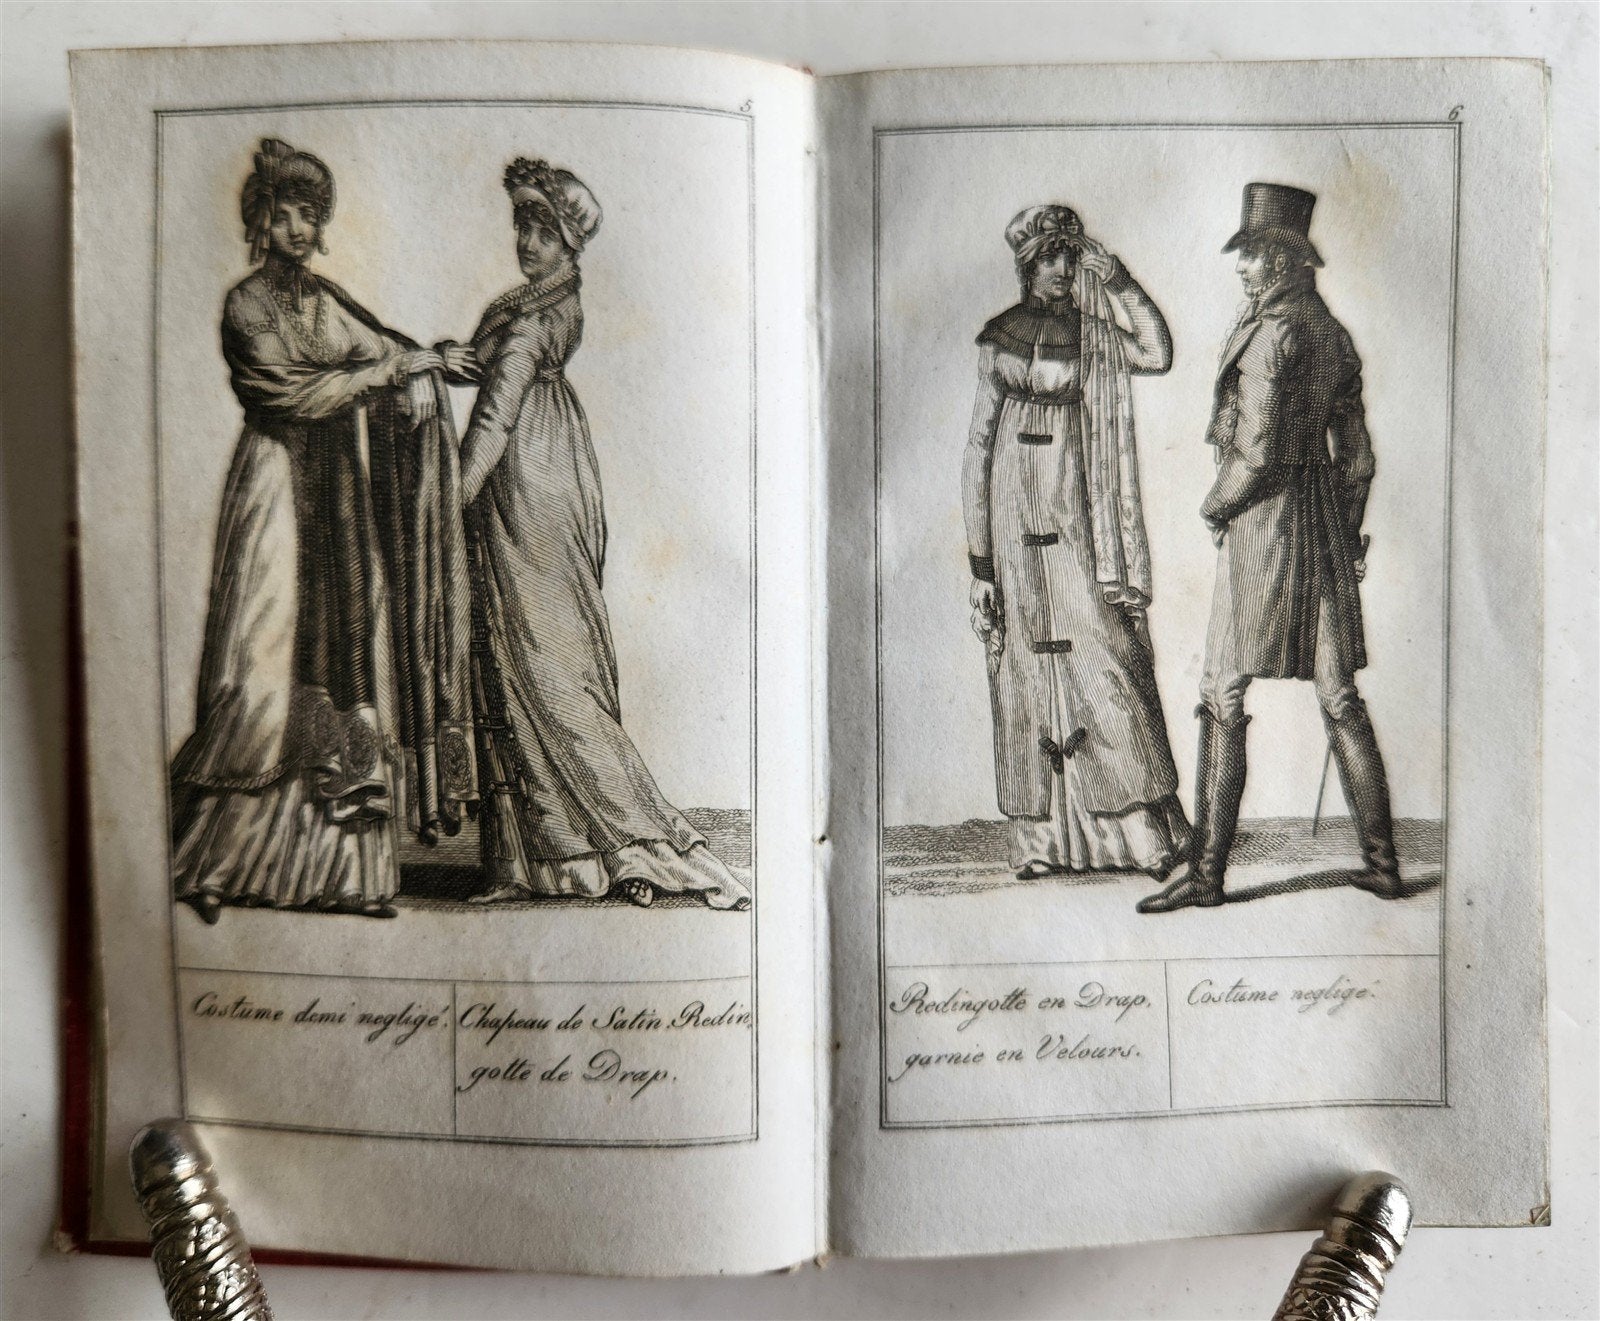 5
Costume demi negligé.
Chapeau de Satin, Redin,
gotte de Drap.
6
Redingotte en Drap,
garnie en Velours.
Costume negligé.